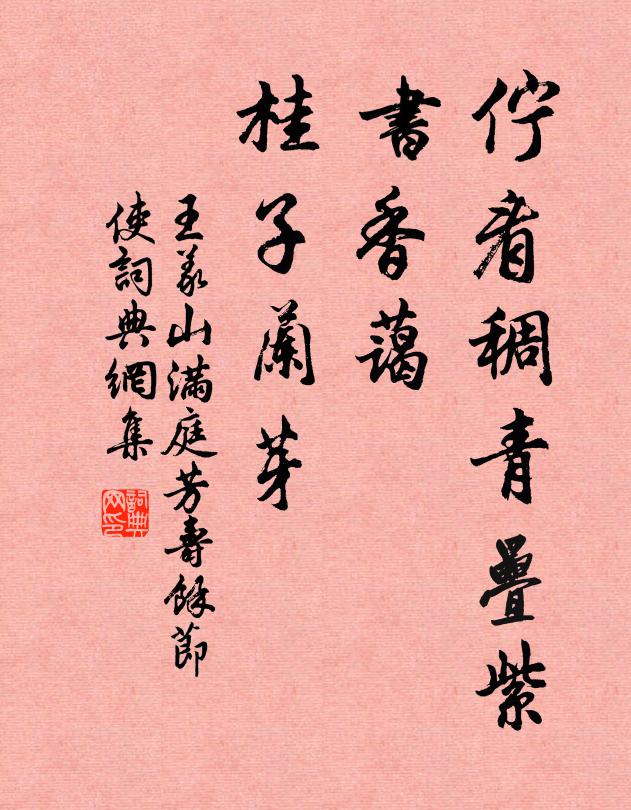 佇看稠青疊紫
書香藹
桂子蘭芽
王義山滿庭芳壽餘節
使詞典網集
詞典网印